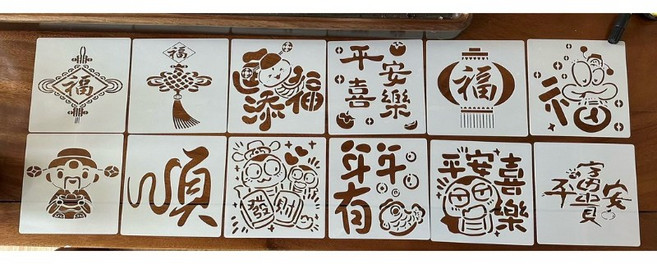 福
福
添福
平安
喜樂
福
福
順
發財
年年
有
平安喜
樂
富貴
平安